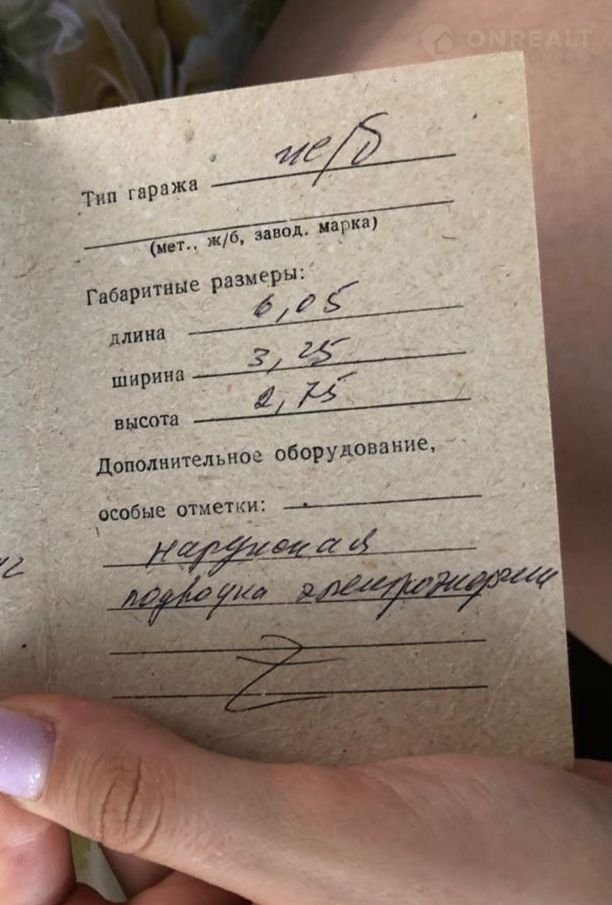 ONREALT
НЕДВИЖИМОСТЬ
Тип гаража ж/б
(мет., ж/б, завод. марка)
Габаритные размеры:
длина 6,05
ширина 3,25
высота 2,75
Дополнительное оборудование,
особые отметки:
наружная
подводка электроэнергии